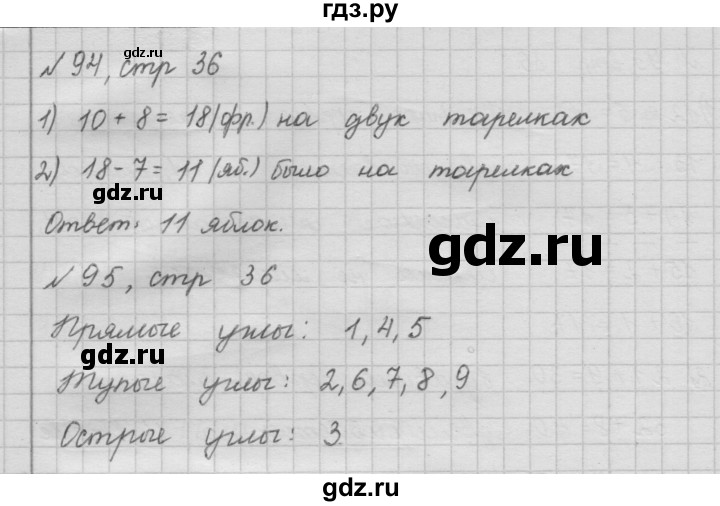 гдз.ру
№ 94, стр 36
gdz.ru
1) 10 + 8 = 18 (фр.) на двух тарелках
2) 18 - 7 = 11 (яб.) было на тарелках
gdz.ru
Ответ: 11 яблок.
gdz.ru
№ 95, стр 36
Прямые углы: 1, 4, 5
gdz.ru
Тупые углы: 2, 6, 7, 8, 9
Острые углы: 3
gdz.ru